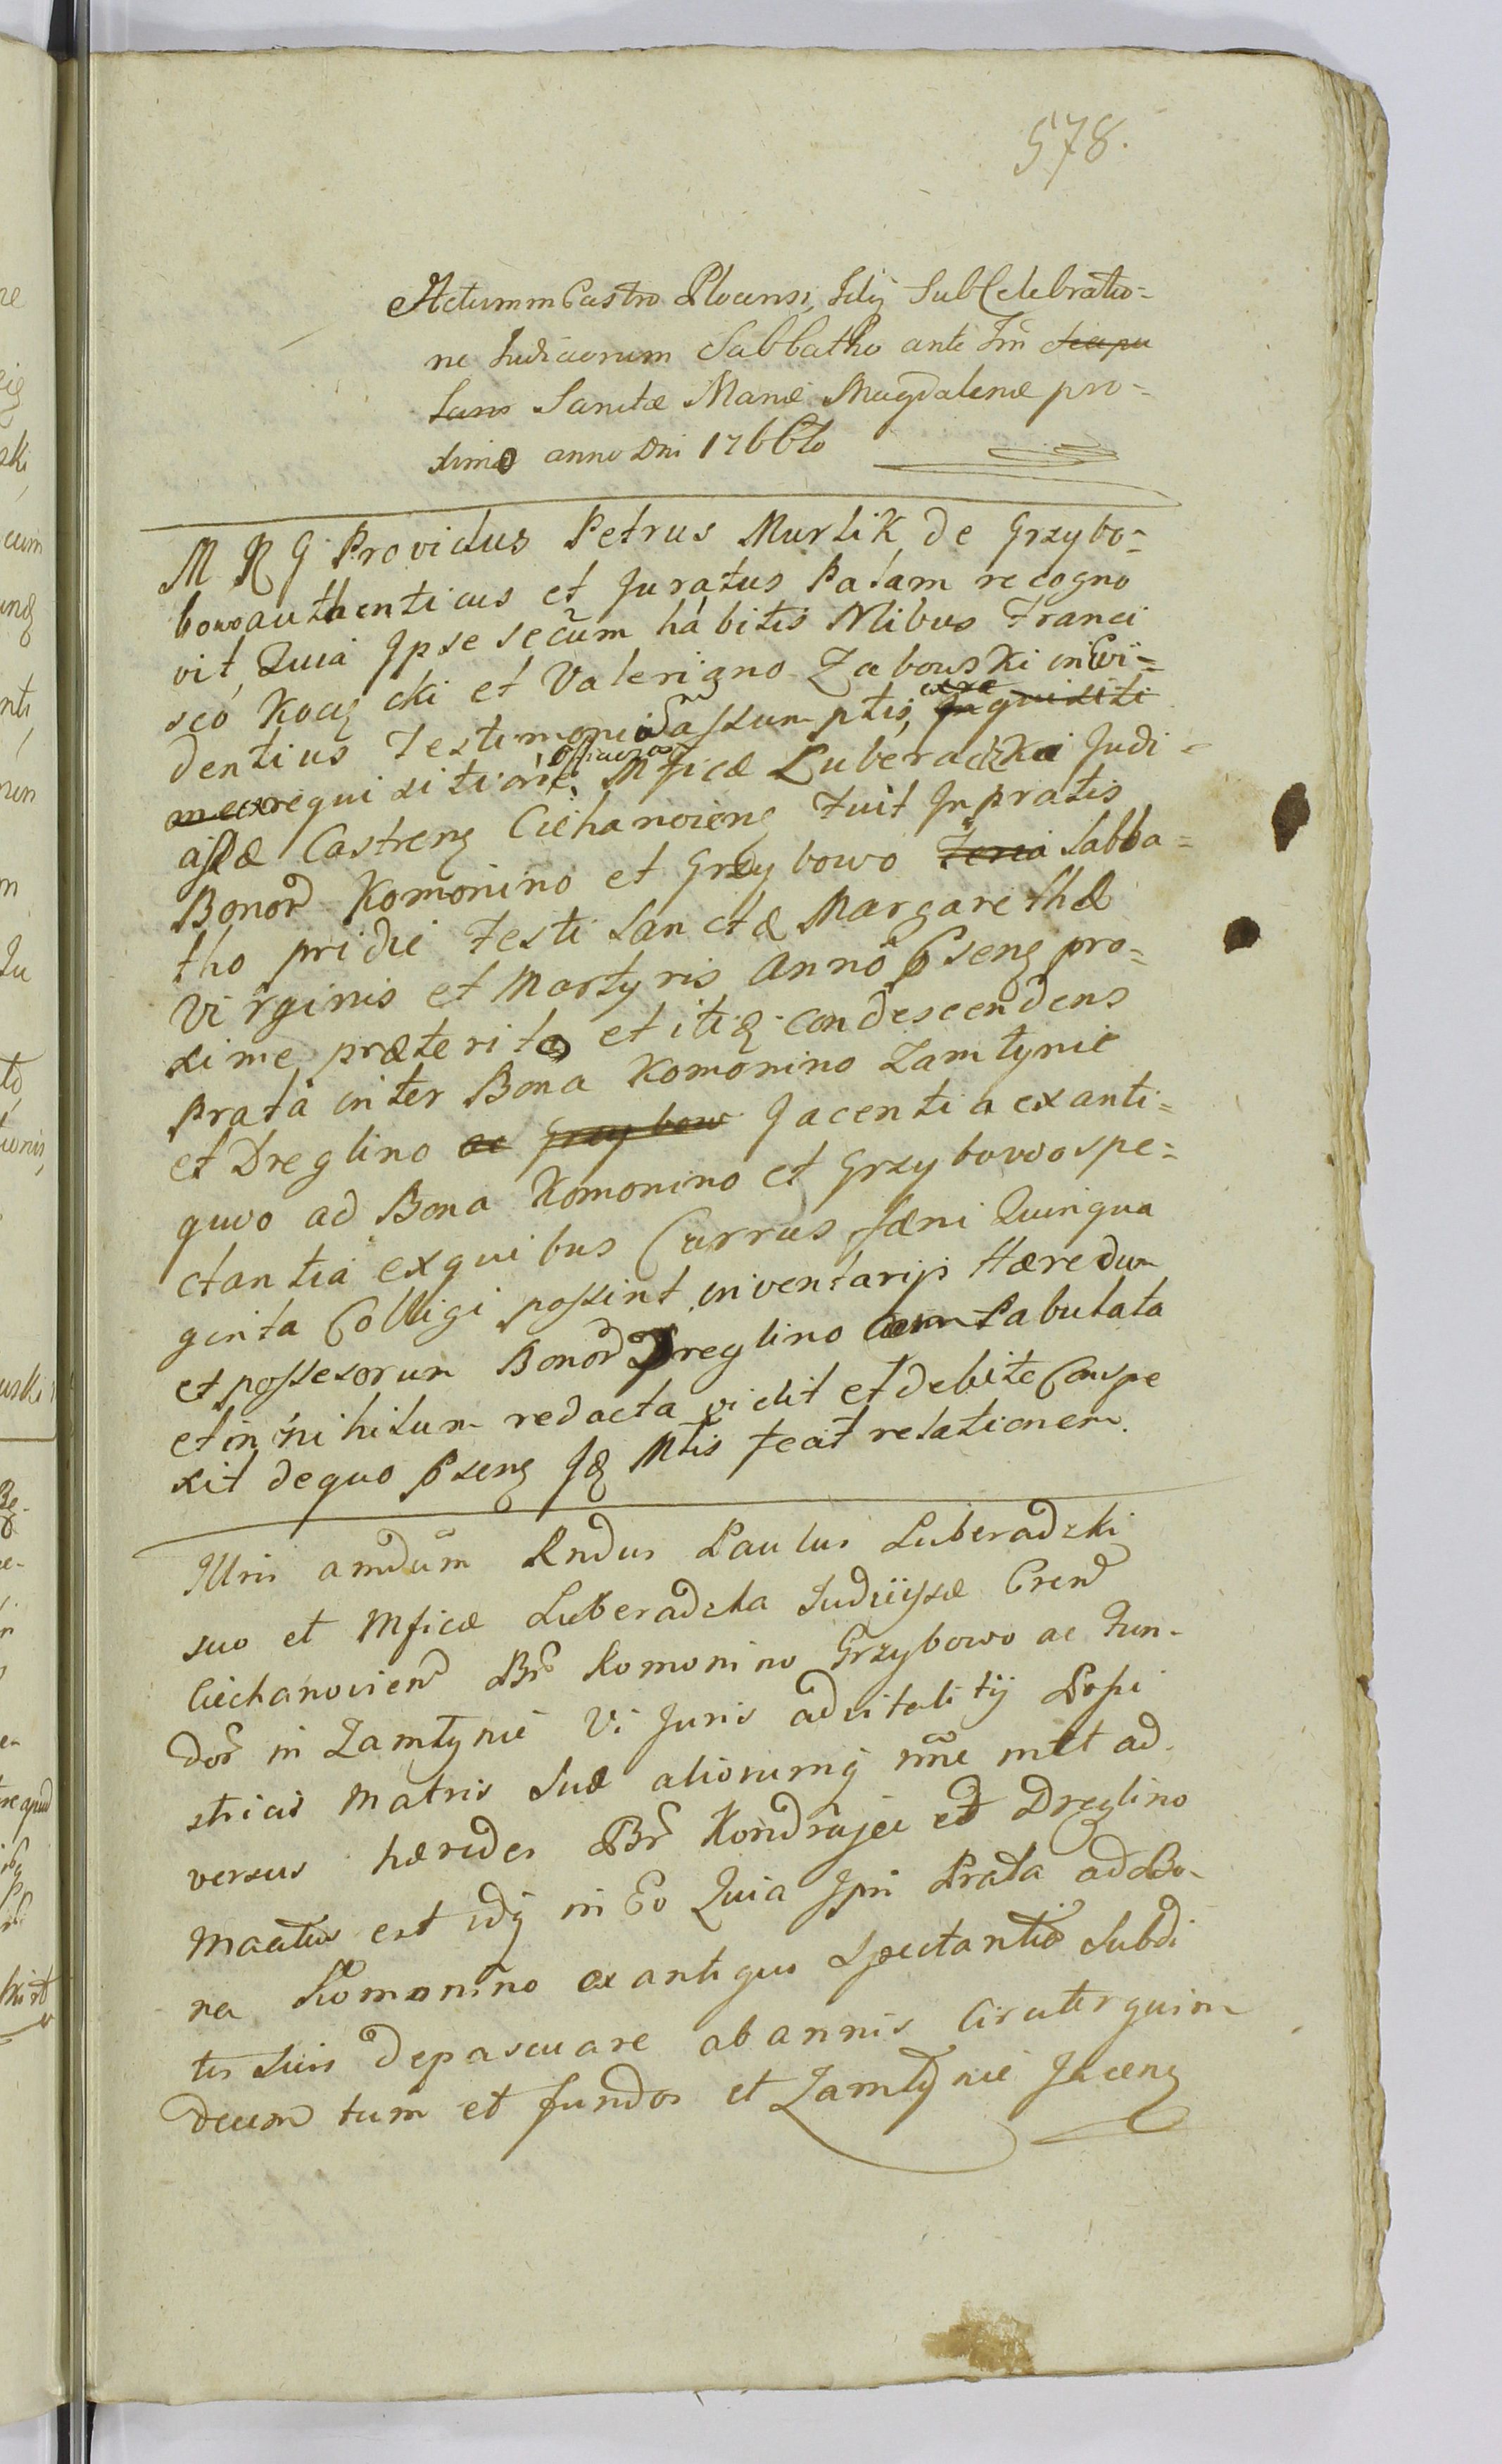 578.
Actum in Castro Plocensi, Feliq Sub Celebratio=
ne Judiciorum Sabbatho ante Fm Scapu
laris Sanctæ Mariæ Magdalenæ pro=
ximo anno Dni 1766to
M R G Providus Petrus Murlik de Grzybo=
bowo authenticus et Juratus Palam recogno
vit, Quia Ipse secum habitis Nlibus Franci
sco Kocięcki et Valeriano Zabowski in Evi=
dentius Testimonium assumptis, extra Inquisiti
mea requisitione Officiosa Mficæ Luberadzka Judi=
cissæ Castrenę Ciechanoienę Fuit In pratis
Bonor Komonino et Grzybowo Feria Sabba=
tho pridie Festi Sanctæ Margarethæ
Virginis et Martyris Anno psenę pro=
xime præterito et ibiq condescendens
Prata inter Bona Komonino Zamłynie
et Dreglino ac Grzybow Jacentia ex anti=
quo ad Bona Komonino et Grzybowo spe=
ctantia ex quibus Currus fæni Quinqua
ginta Colligi possint, inventarijs Hæredum
et possesorum Bonor Dreglino Pabulata
et in nihilum redacta vidit et debite Conspe
xit de quo psenę Jq Mtis fecit relationem.
Mni amdum Rndus Paulus Luberadzki
suo et Mficæ Luberadzka Judicissæ Cren
Ciechanovien Br Komonino Grzybowo ac Fun-
dor in Zamłynie Vi Juris advitalitij Possi
stricis Matris Suæ aliorumq nne mtt ad
versus hæredes Br Kondrajec et Dreglino
Mactus est idq in Eo Quia Ipsi Prata ad Bo-
na Komonino ex antiquo Spectantia Subdi
tis Suis depascuare ab annis Circiter quin
decem tum et fundos et Zamłynie Jacenę